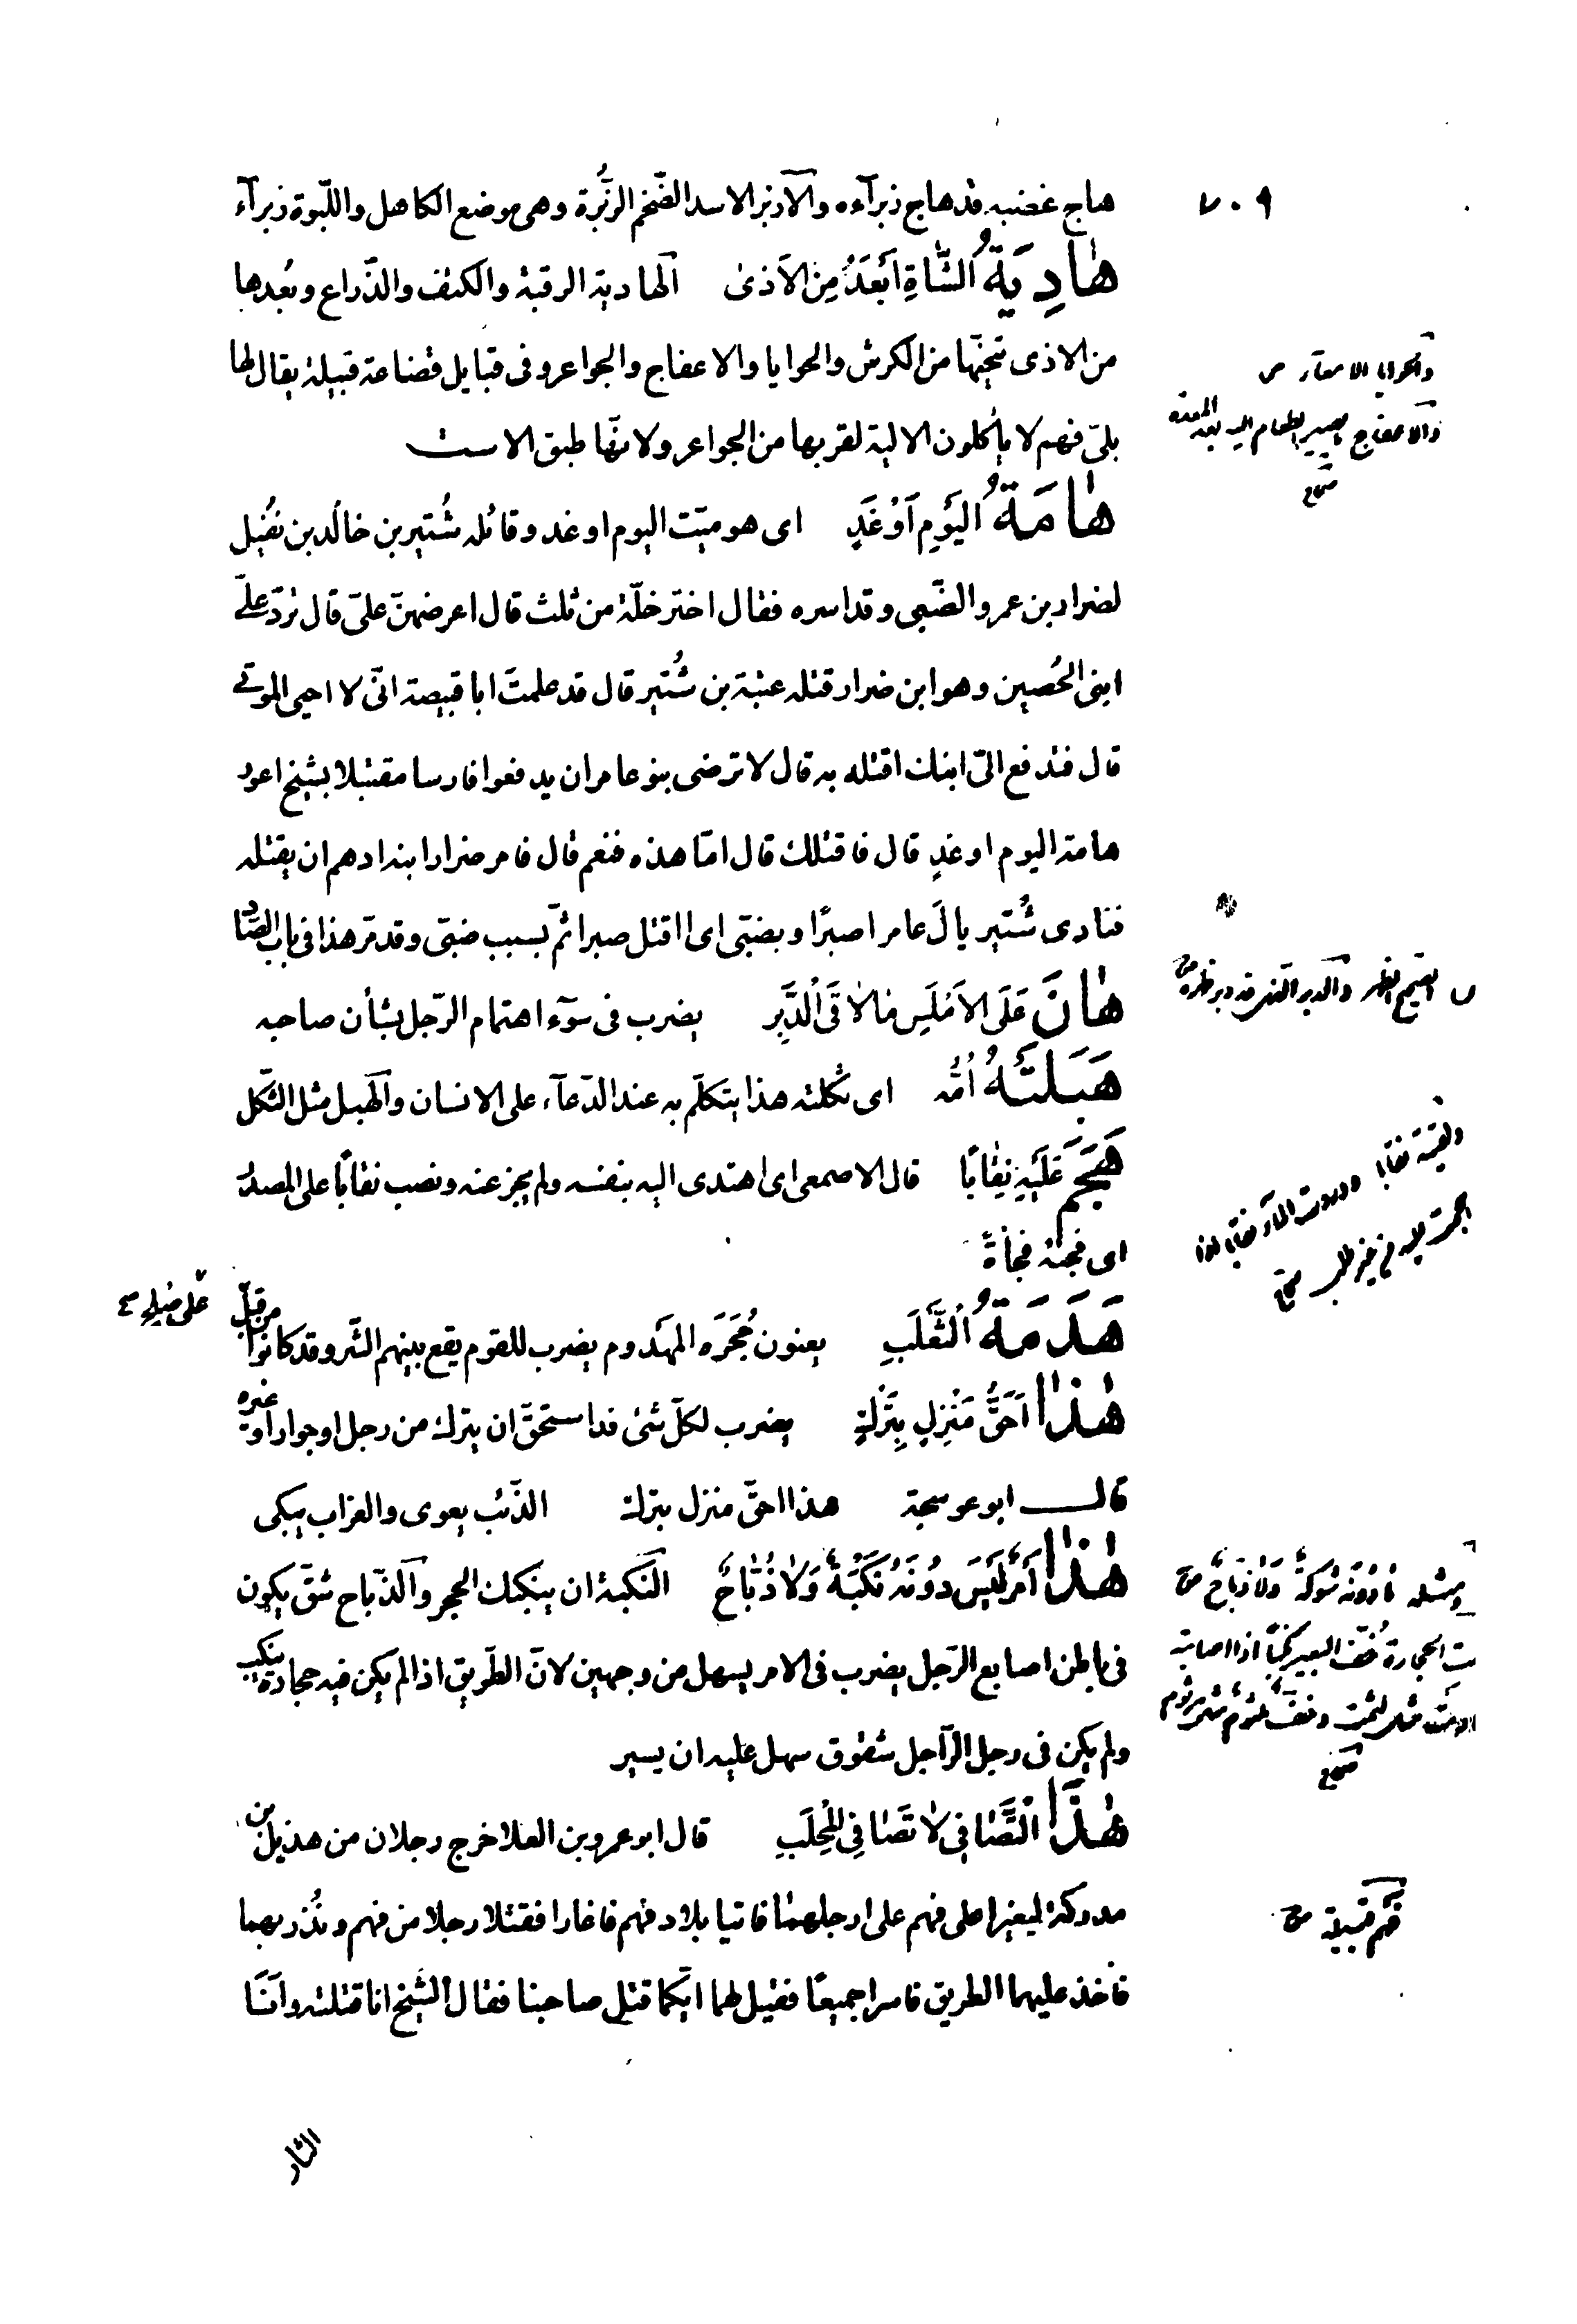 ٧٠٩
هاج غضبه قد هاج زبرآءه والآزبر الاسد الضّخم الزُّبرة وهى موضع الكاهل واللّبوة زبرآء
هٰادِيَةُ الشّٰاةِ اَبْعَدُ مِنَ الاَذىٰ الهادية الرقبة والكتف والذّراع وبُعدها
من الاذى تنحّيها من الكرش والحوايا والاعفاج والجواعر وفى قبايل قضاعة قبيلة يقال لها
بلىّ فهم لا ياكلون الالية لقربها من الجواعر ولانّها طبق الاست
هٰامَةُ الْيَوْمِ اَوْ غَدٍ اى هو ميّت اليوم او غد وقائله شُتير بن خالد بن نُفيل
لضرار بن عمرو الضّبى وقد اسره فقال اختر خلّة من ثلث قال اعرضهنّ علىّ قال تردّ علىّ
ابنى الحُصين وهو ابن ضرار قتله عتبة بن شُتير قال قد علمتَ ابا قبيصة انّى لا احيى الموتى
قال فتدفع الىّ ابنك اقتله به قال لا ترضى بنو عامر ان يدفعوا فارسا مقتبلا بشيخ اعور
هامة اليوم او غدٍ قال فاقتلك قال امّا هذه فنعم قال فامر ضرار ابنه ادهم ان يقتله
فنادى شُتير يا لَ عامر اصبرًا وبضبّى اى ااقتل صبرا ثمّ بسبب ضبّى وقد مرّ هذا فى باب الصّاد
هٰانَ عَلَى الاَمْلَسِ مٰا لاٰقَى الدَّبِر يضرب فى سوٓء اهتمام الرّجل بشأن صاحبه
هَبَلَتْهُ اُمُّه اى ثكلته هذا يتكلّم به عند الدّعآء على الانسان والهبل مثل الثّكل
هَجَمَ عَلَيْهِ نِقٰابًا قال الاصمعى اى اهتدى اليه بنفسه ولم يجز عنه ونصب نقابًا على المصدر
اى فجئه فجأةً
هَدَمَةُ الثَّعْلَبِ يعنون جُحَرَه المهدوم يضرب للقوم يقع بينهم الشّر وقد كانوا من قبل على صلح
هٰذٰا اَحَقُّ مَنْزِلٍ بِتَرْكٍ يضرب لكلّ شئ قد استحقّ ان يترك من رجل او جوار او غيره
قال ابو عوسجة هذا احقّ منزل بترك الذّئب يعوى والغراب يبكى
هٰذٰا اَمْرٌ لَيْسَ دُونَهُ نَكْبَةٌ وَلاٰ ذُبّٰاحٌ النّكبة ان ينكبك الحجر والذّباح شقّ يكون
فى باطن اصابع الرّجل يضرب فى الامر يسهل من وجهين لانّ الطّريق اذا لم يكن فيه حجارة ينكب
ولم يكن فى رجل الرّاجل شقوق سهل عليه ان يسير
هٰذَا التَّصٰافِى لاٰ تَصٰافِى الْمِحْلَبِ قال ابو عمرو بن العلا خرج رجلان من هذيل بن
مدركة ليغيرا على فهم على ارجلهما فاتيا بلاد فهم فاغارا فقتلا رجلا من فهم ونُذر بهما
فاخذ عليهما الطريق فاسرا جميعًا فقيل لهما ايّكما قتل صاحبنا فقال الشّيخ انا قتلته وانَا
الثار
والحوايا الامعآء ص
والاعفاج يصير الطعام اليه بعد المعدة
صحاح
والدبر الذى قد دبر ظهره ص
ولقيته نقابا ووردت المآء نقابا اذا
هجمت عليه من غير طلب صحاح
ومثله ما دونه شوكة ولا ذباح ص
الحجارة خفّ البعير اذا اصابته
صحاح
فهم قبيلة ص